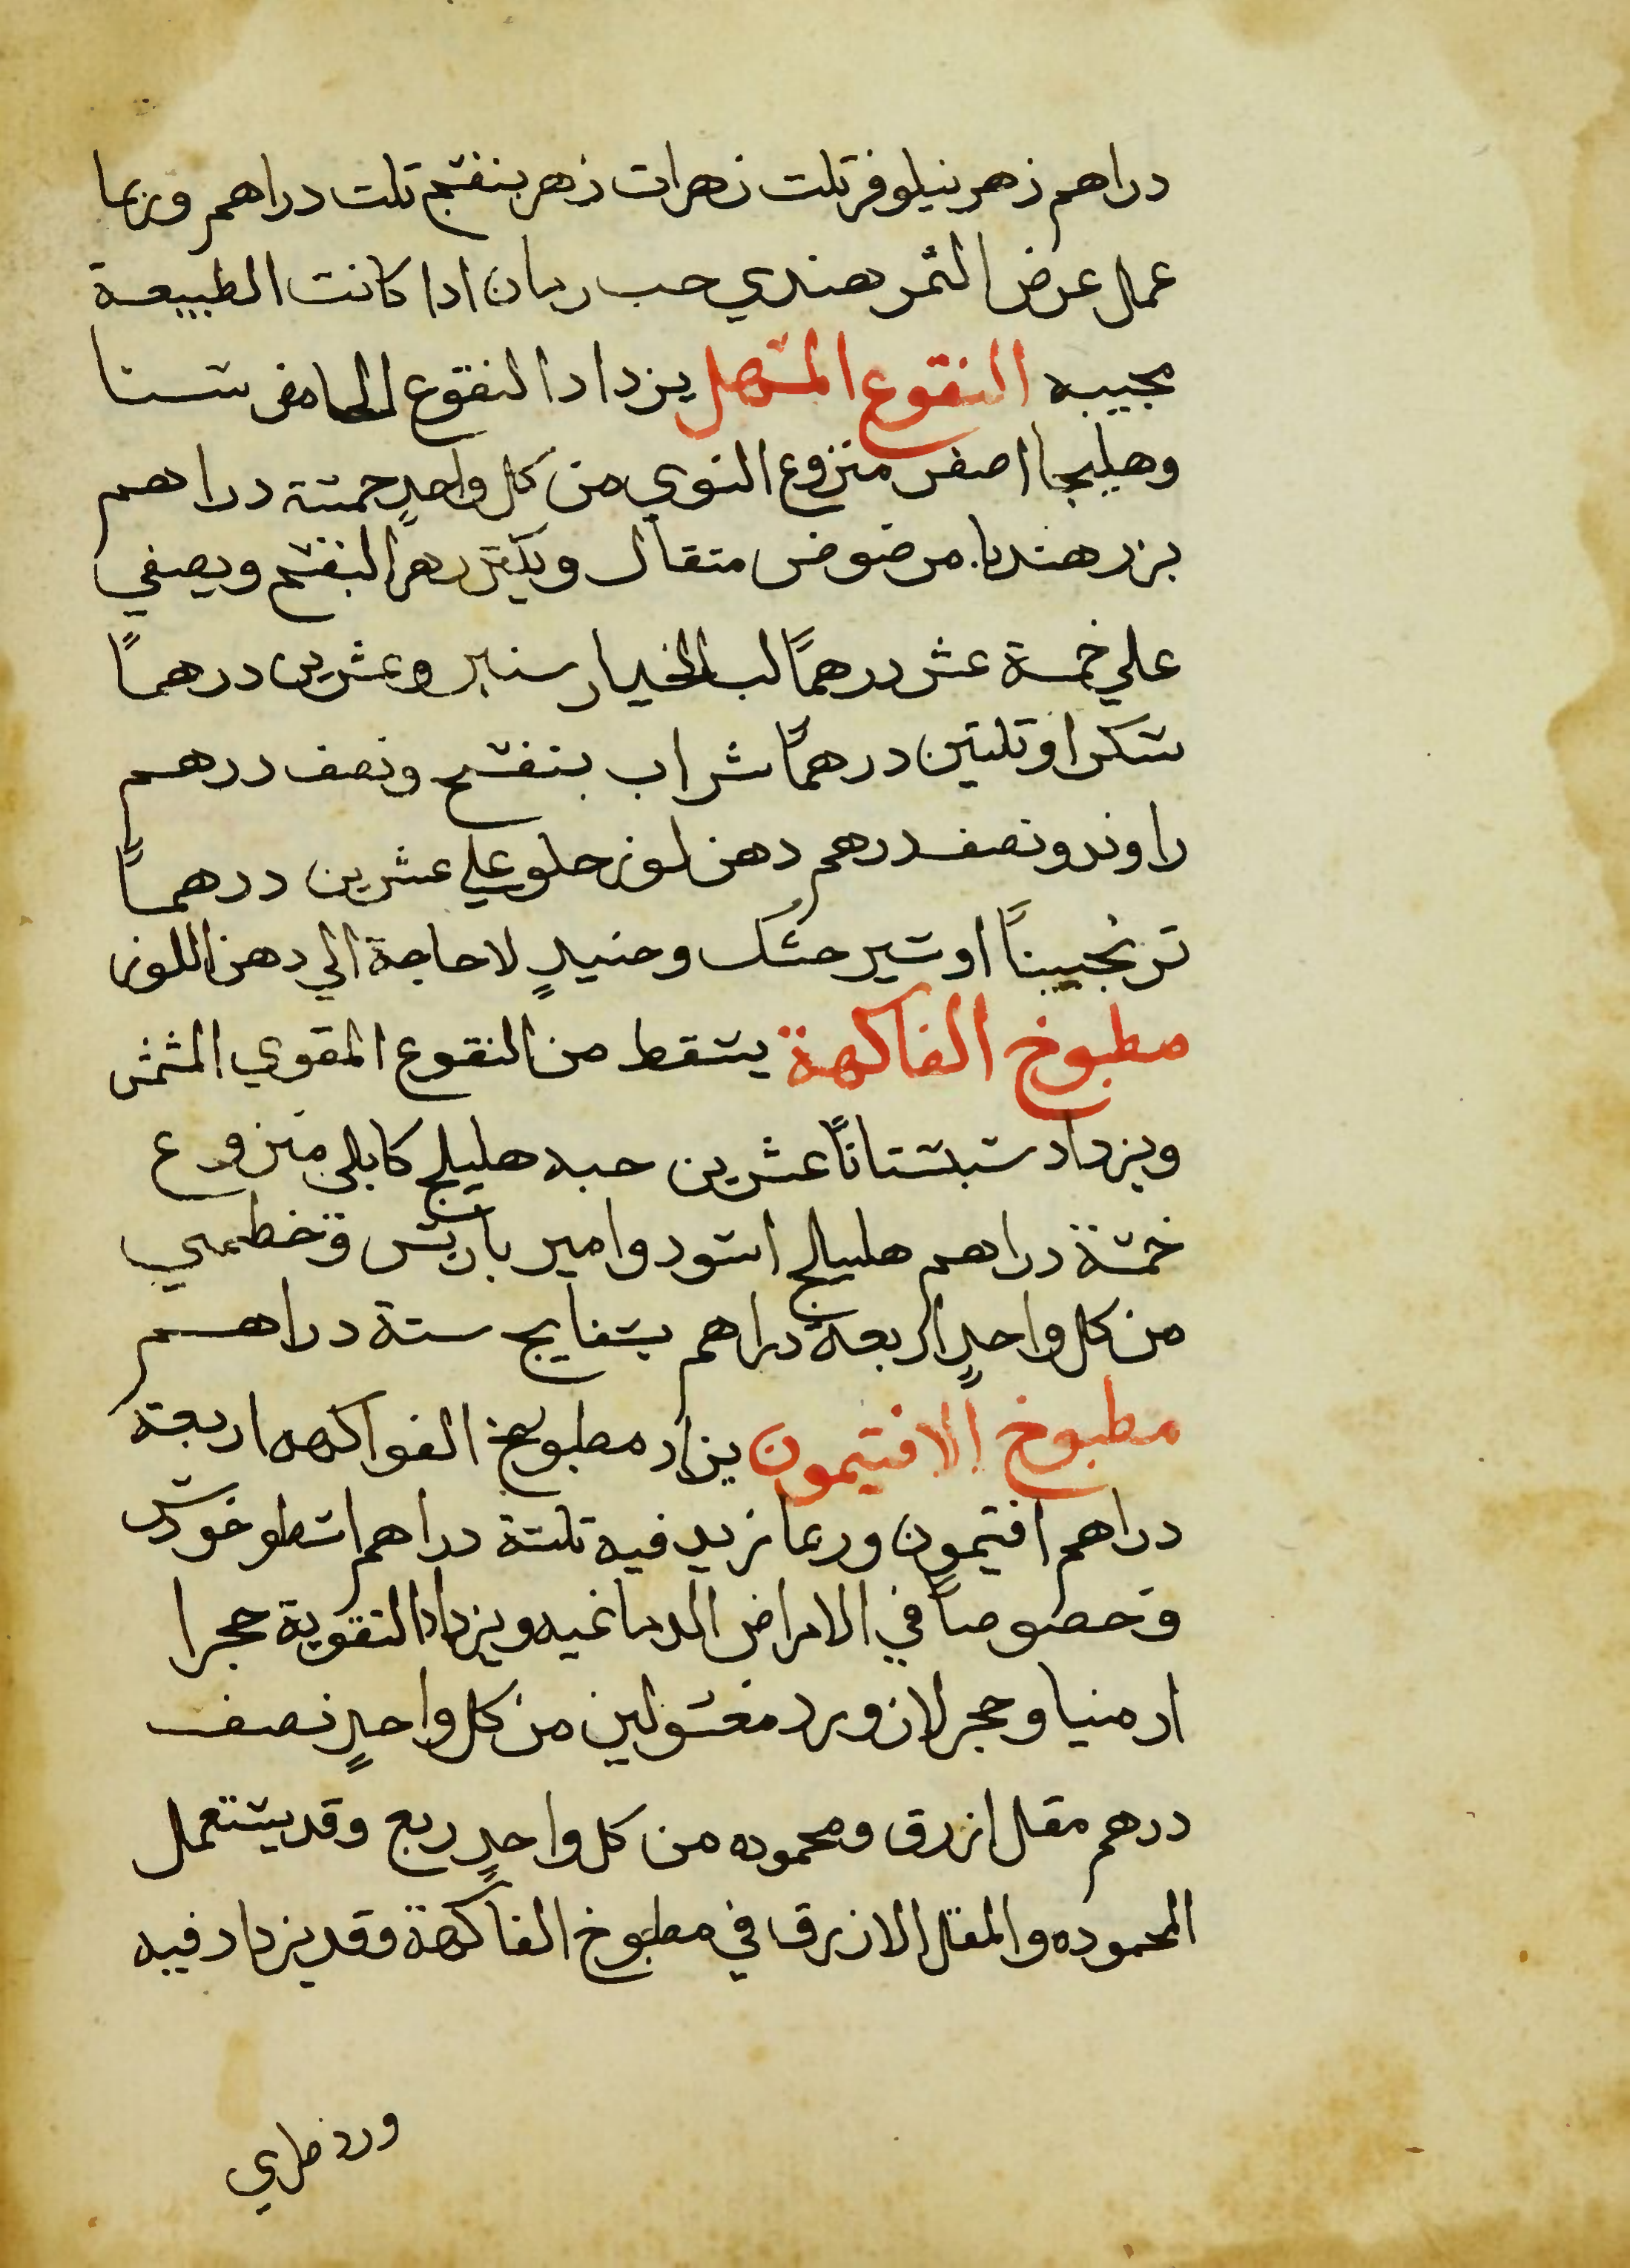 دراهم زهر نيلوفر تلت زهرات زهر بنفسج تلت دراهم وربما
عمل عرض التمر هندي حب رمان ادا كانت الطبيعة
مجيبه النقوع المسهل يزداد النقوع الحامض سنا
وهليجا اصفر منزوع النوي من كل واحدٍ خمسة دراهم
بزر هندبا مرضوض متقال ويكتر زهر البنفسج ويصفي
علي خمسة عشر درهمًا لب الخيار سنبر وعشرين درهمًا
سكرا وتلتين درهمًا شراب بنفسج ونصف درهم
راوند ونصف درهم دهن لوز حلو علي عشرين درهمًا
ترنجبينًا او شير خشك وحنيدٍ لا حاجة الي دهن اللوز
مطبوخ الفاكهة يسقط من النقوع المقوي المشمش
ويزداد سبستانًا عشرين حبه هليلج كابلي منزوع
خمسة دراهم هليلج اسود وامير باريس وخطمي
من كل واحدٍ اربعة دراهم بسفايج ستة دراهم
مطبوخ الافتيمون يزاد مطبوخ الفواكهه اربعة
دراهم افتيمون وربما زيد فيه تلتة دراهم اسطوخودس
وخصوصًا في الامراض الدماغيه ويزداد التقوية حجرا
ارمنيا وحجر لازورد مغسولين من كل واحدٍ نصف
درهم مقل ازرق ومحموده من كل واحدٍ ربع وقد يستعمل
المحموده والمقل الازرق في مطبوخ الفاكهة وقد يزداد فيه
ورد طري